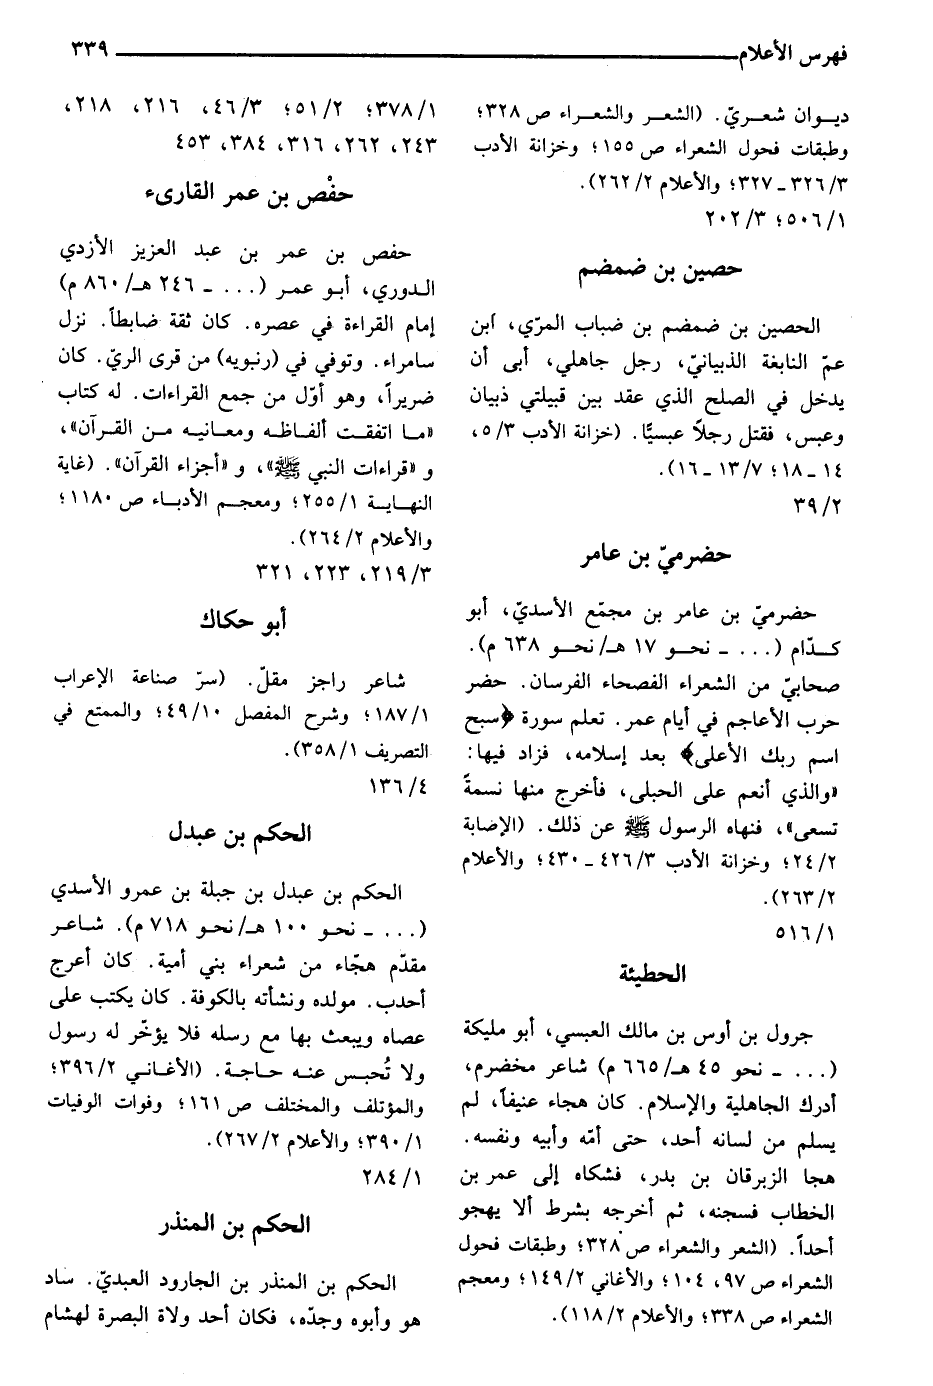 فهرس الأعلام ٣٣٩
ديـوان شعـريّ. (الشعـر والشعـراء ص ٣٢٨؛
وطبقات فحول الشعراء ص ١٥٥؛ وخزانة الأدب
٣/ ٣٢٦ ـ ٣٢٧؛ والأعلام ٢/ ٢٦٢).
١/ ٥٠٦؛ ٣/ ٢٠٢
حصين بن ضمضم
الحصين بن ضمضم بن ضباب المرّي، ابن
عمّ النابغة الذبيانيّ، رجل جاهلي، أبى أن
يدخل في الصلح الذي عقد بين قبيلتي ذبيان
وعبس، فقتل رجلاً عبسيًّا. (خزانة الأدب ٣/ ٥،
١٤ ـ ١٨؛ ٧/ ١٣ ـ ١٦).
٢/ ٣٩
حضرميّ بن عامر
حضرميّ بن عامر بن مجمّع الأسديّ، أبو
كـدّام (... ـ نحـو ١٧ هـ/ نحـو ٦٣٨ م).
صحابيّ من الشعراء الفصحاء الفرسان. حضر
حرب الأعاجم في أيام عمر. تعلم سورة ﴿سبح
اسم ربك الأعلى﴾ بعد إسلامه، فزاد فيها:
«والذي أنعم على الحبلى، فأخرج منها نسمةً
تسعى»، فنهاه الرسول ﷺ عن ذلك. (الإصابة
٢/ ٢٤؛ وخزانة الأدب ٣/ ٤٢٦ ـ ٤٣٠؛ والأعلام
٢/ ٢٦٣).
١/ ٥١٦
الحطيئة
جرول بن أوس بن مالك العبسي، أبو مليكة
(... ـ نحو ٤٥ هـ/ ٦٦٥ م) شاعر مخضرم،
أدرك الجاهلية والإسلام. كان هجاء عنيفاً، لم
يسلم من لسانه أحد، حتى أمّه وأبيه ونفسه.
هجا الزبرقان بن بدر، فشكاه إلى عمر بن
الخطاب فسجنه، ثم أخرجه بشرط ألا يهجو
أحداً. (الشعر والشعراء ص ٣٢٨؛ وطبقات فحول
الشعراء ص ٩٧، ١٠٤؛ والأغاني ٢/ ١٤٩؛ ومعجم
الشعراء ص ٣٣٨؛ والأعلام ٢/ ١١٨).
١/ ٣٧٨؛ ٢/ ٥١؛ ٣/ ٤٦، ٢١٦، ٢١٨،
٢٤٣، ٢٦٢، ٣١٦، ٣٨٤، ٤٥٣
حفْص بن عمر القارىء
حفص بن عمر بن عبد العزيز الأزدي
الـدوري، أبـو عمـر (... ـ ٢٤٦ هـ/ ٨٦٠ م)
إمام القراءة في عصره. كان ثقة ضابطاً. نزل
سامراء. وتوفي في (رنبويه) من قرى الريّ. كان
ضريراً، وهو أوّل من جمع القراءات. له كتاب
«مـا اتفقـت ألفـاظـه ومعـانيـه مـن القـرآن»،
و «قراءات النبي ﷺ»، و «أجزاء القرآن». (غاية
النهـايـة ١/ ٢٥٥؛ ومعجـم الأدبـاء ص ١١٨٠؛
والأعلام ٢/ ٢٦٤).
٣/ ٢١٩، ٢٢٣، ٣٢١
أبو حكاك
شاعر راجز مقلّ. (سرّ صناعة الإعراب
١/ ١٨٧؛ وشرح المفصل ١٠/ ٤٩؛ والممتع في
التصريف ١/ ٣٥٨).
٤/ ١٣٦
الحكم بن عبدل
الحكم بن عبدل بن جبلة بن عمرو الأسدي
(... ـ نحـو ١٠٠ هـ/ نحـو ٧١٨ م). شـاعـر
مقدّم هجّاء من شعراء بني أمية. كان أعرج
أحدب. مولده ونشأته بالكوفة. كان يكتب على
عصاه ويبعث بها مع رسله فلا يؤخّر له رسول
ولا تُحبـس عنـه حـاجـة. (الأغـانـي ٢/ ٣٩٦؛
والمؤتلف والمختلف ص ١٦١؛ وفوات الوفيات
١/ ٣٩٠؛ والأعلام ٢/ ٢٦٧).
١/ ٢٨٤
الحكم بن المنذر
الحكم بن المنذر بن الجارود العبديّ. ساد
هو وأبوه وجدّه، فكان أحد ولاة البصرة لهشام